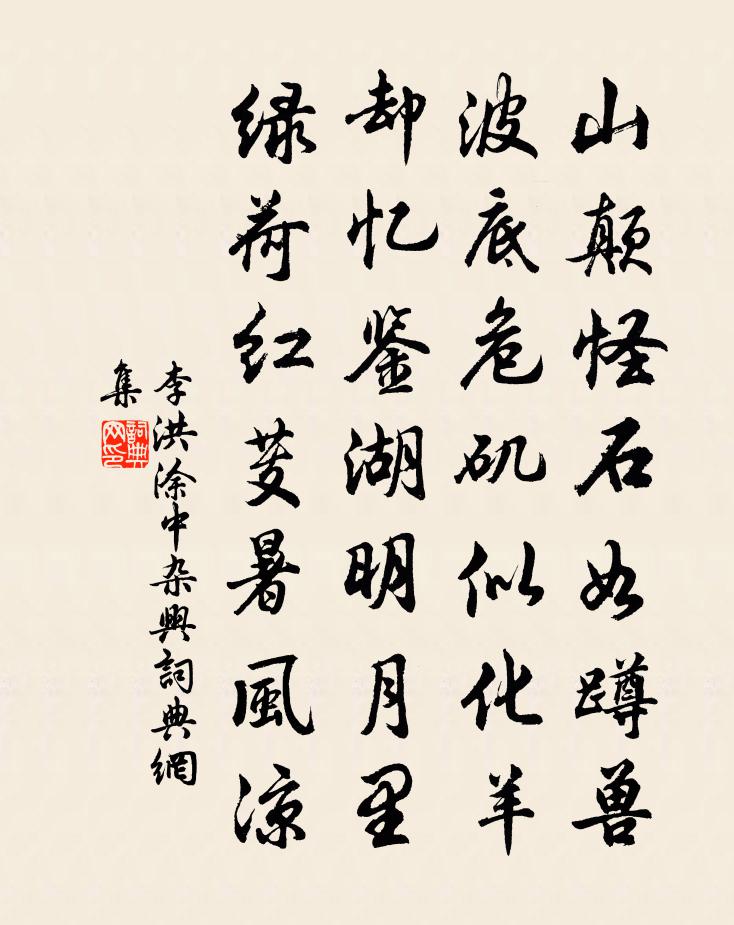 山颠怪石如蹲兽
波底危矶似化羊
却忆鉴湖明月里
绿荷红芰暑風凉
李洪涂中杂興詞典網
集
詞典
网印